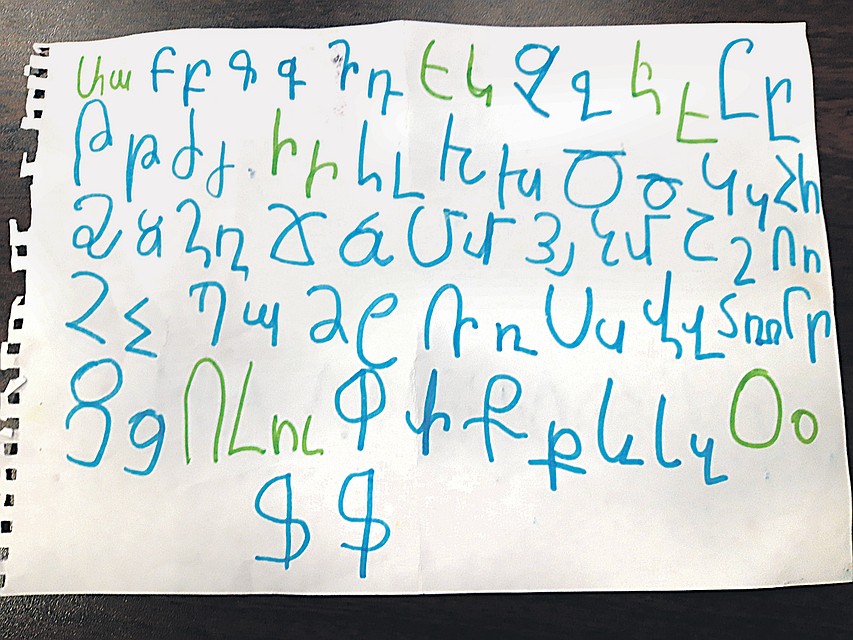 Ա ա Բ բ Գ գ Դ դ Ե ե Զ զ Է է Ը ը
Թ թ Ժ ժ Ի ի Լ լ Խ խ Ծ ծ Կ կ Հ հ
Ձ ձ Ղ ղ Ճ ճ Մ մ Յ յ Ն ն Շ շ Ո ո
Չ չ Պ պ Ջ ջ Ռ ռ Ս ս Վ վ Տ տ Ր ր
Ց ց ՈՒ ու Փ փ Ք ք և Օ օ
Ֆ ֆ